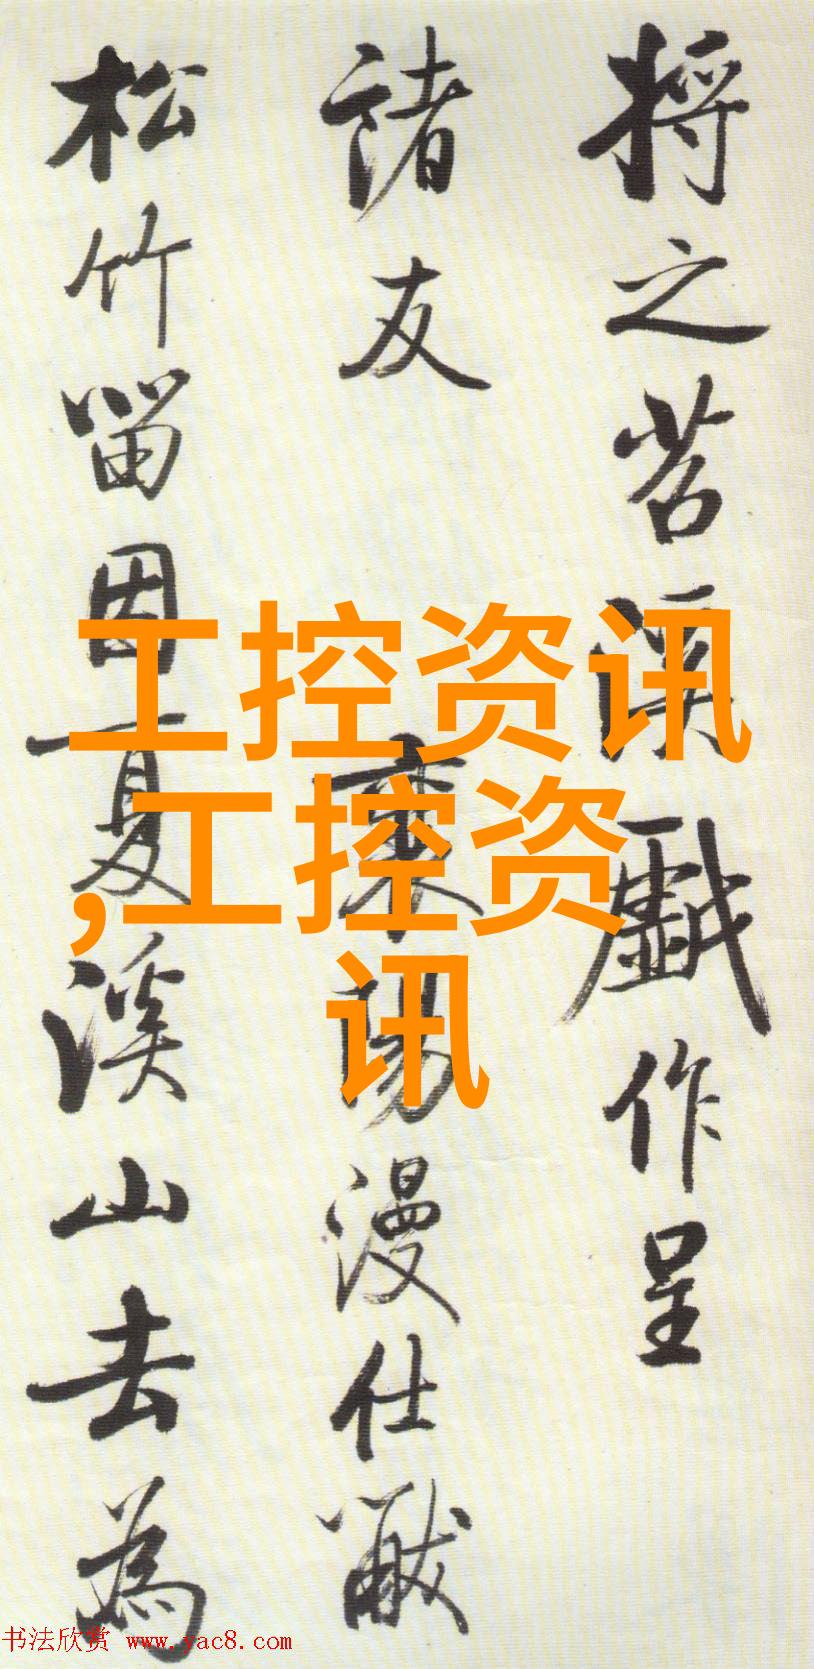 將之苕溪戲作呈
諸友 襄陽漫仕黻
松竹留因夏溪山去為
工控资讯
,工控资
讯
书法欣赏 www.yac8.com